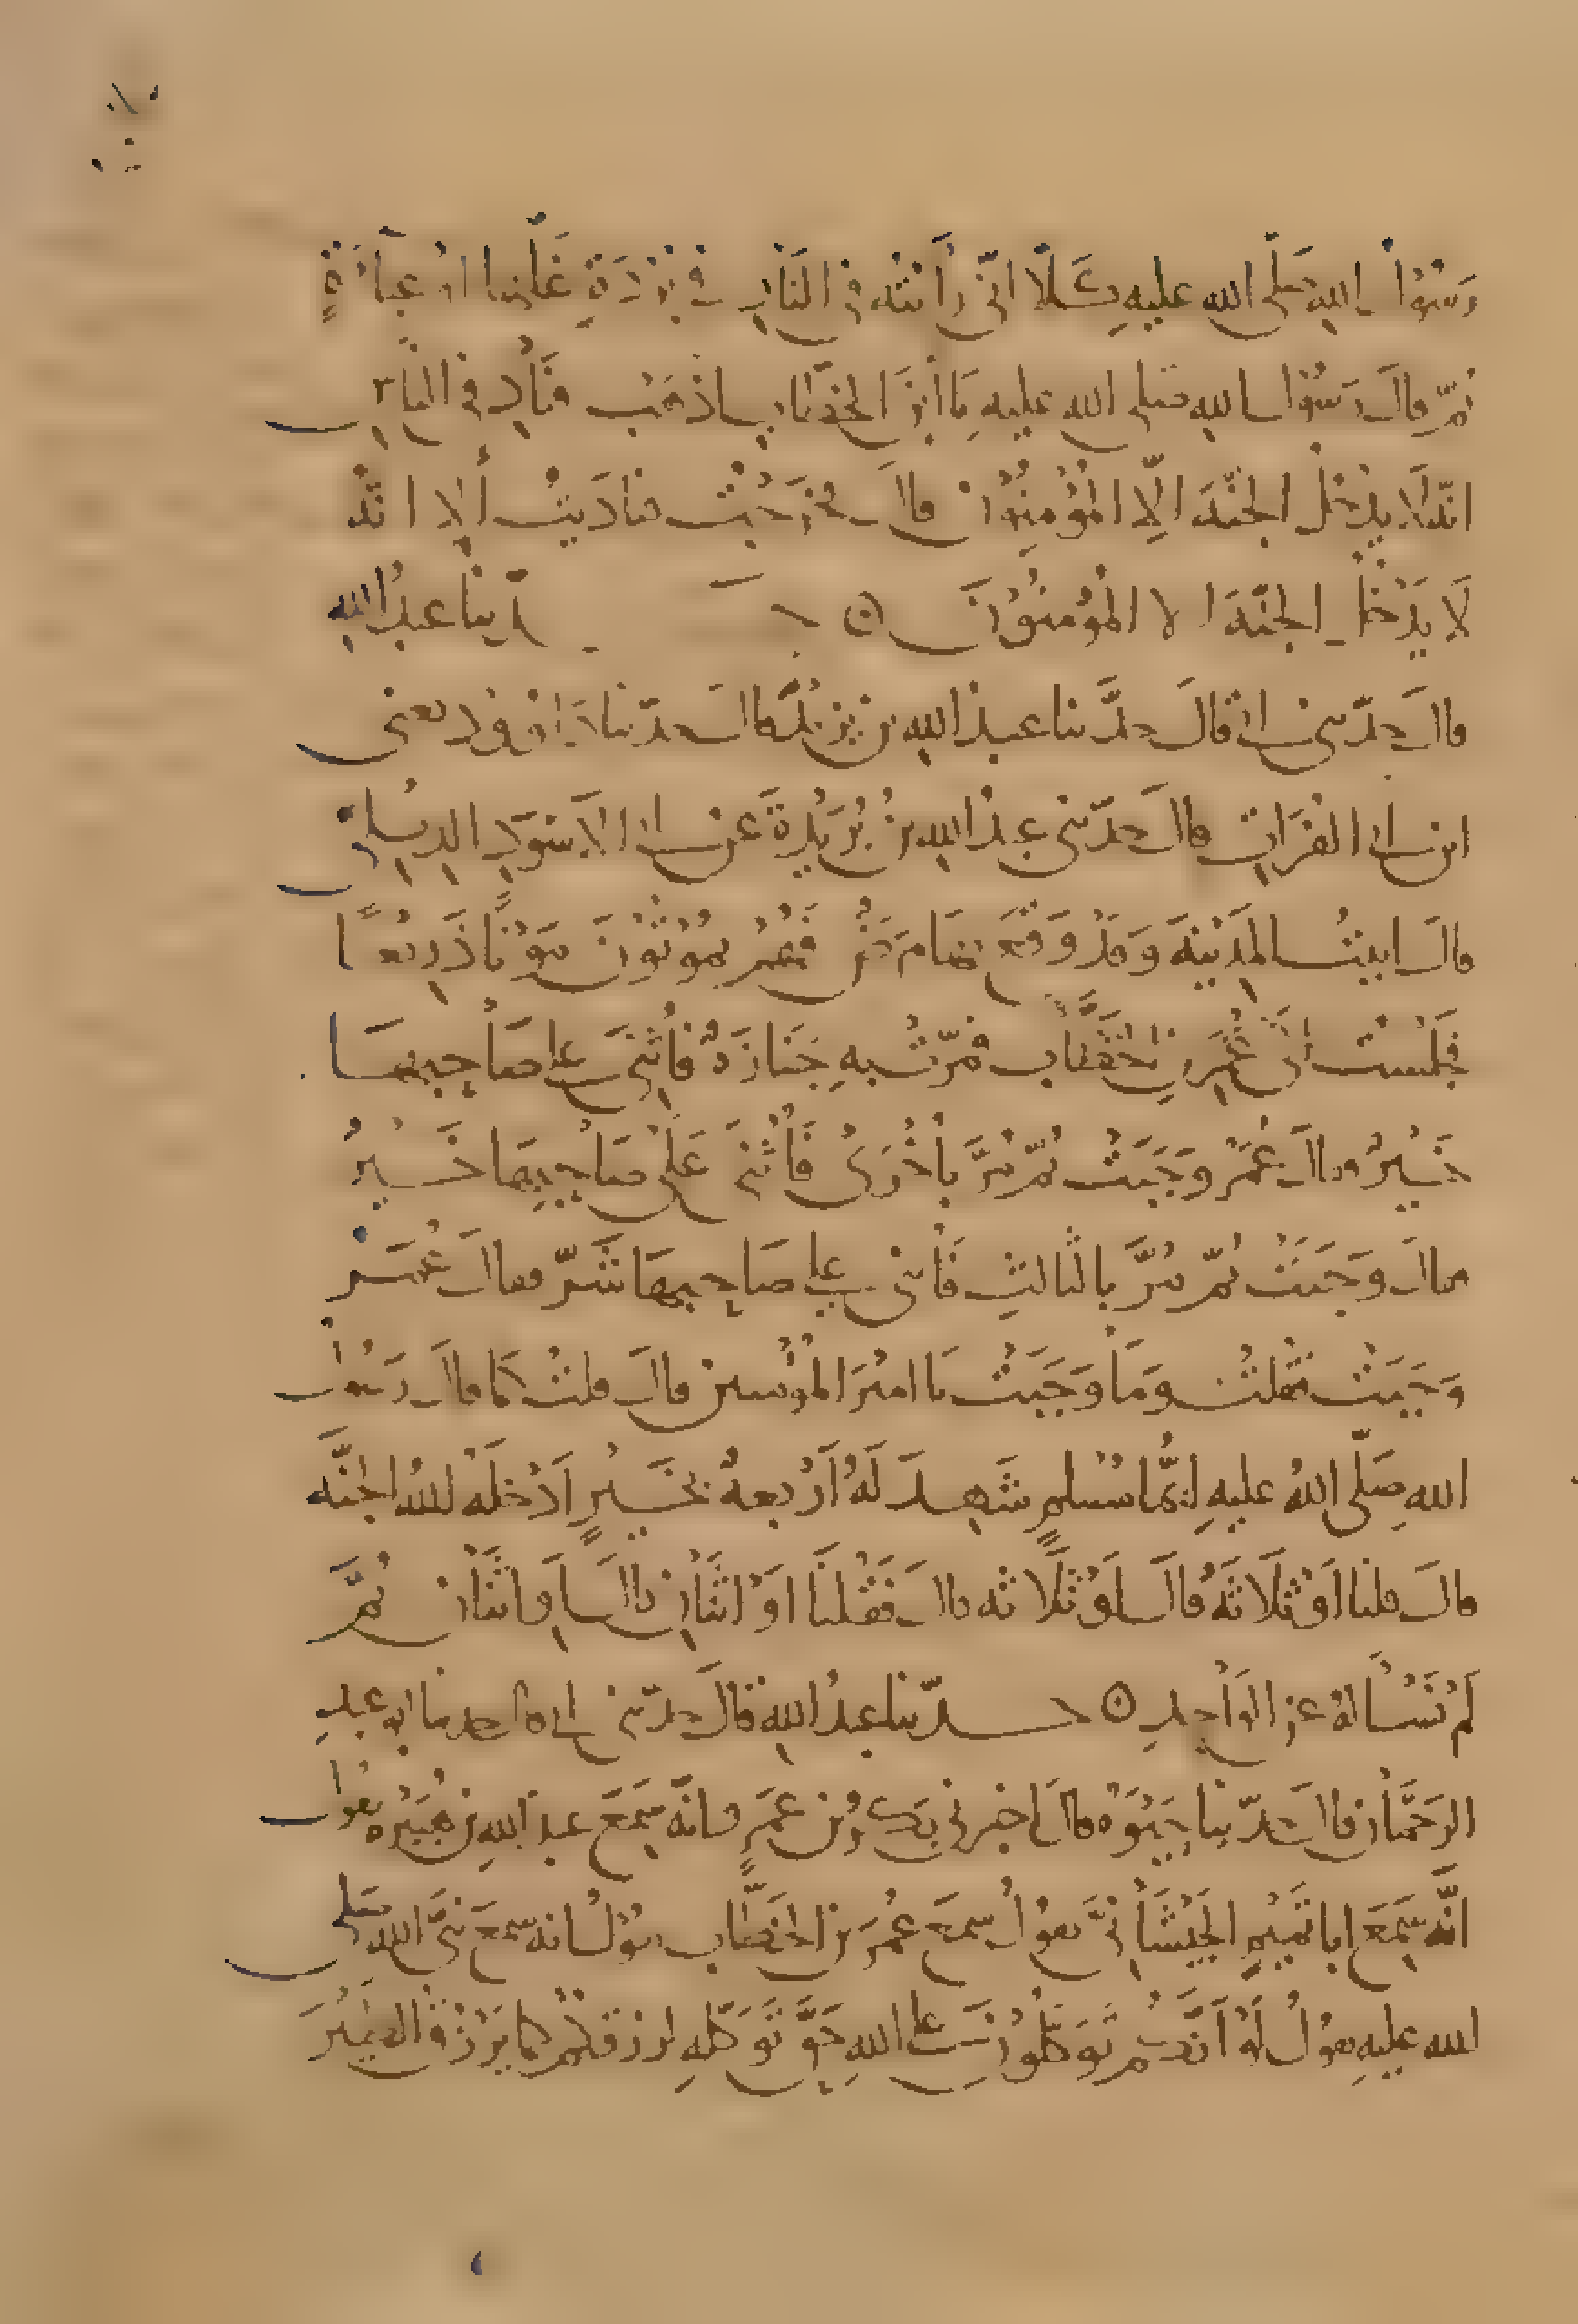 رَسُوْلُ اللهِ صَلَّى الله عليهِ كَلَّا انّى رأيته فى النَّارِ فى بُرْدَةٍ غَلَّها او عَباءَةٍ
ثمّ قالَ رَسُوْل اللهِ صَلى الله عليهِ يَا ابْنَ الخَطّابِ اذهَب فنَادِ فى النّاسِ
انّه لا يدْخُل الجنّةَ الّا المُؤْمِنُوْن قالَ فخرَجْتُ فنادَيْتُ ألا انّه
لَا يَدْخُلُ الجنّةَ الا المُؤمنُوْنَ
حدّثنا عبدُ الله
قالَ حدّثنى ابى قالَ حدَّثنا عبدُ الله بن يزيْدَ قالَ حدّثنا دَاوُد يعنى
ابن ابى الفُرَاتِ قالَ حدّثنى عبدُ الله بنُ بُرَيْدةَ عَن ابى الاَسْوَدِ الدِيلىّ
قالَ اتيتُ المدِيْنةَ وَقدْ وَقَعَ بهَا مَرَضٌ فهُمْ يموْتُوْنَ مَوْتًا ذَرِيعًا
فجلسْت الى عُمَرَ بنِ الخطَّاب فمرّتْ بهِ جَنَازَةٌ فاُثنىَ على صَاحِبهَا
خَيْرٌ فقالَ عُمَرُ وَجَبَتْ ثمّ مُرَّ باُخْرَى فَاُثْنىَ عَلَى صَاحِبِهَا خَيْرٌ
فقالَ وَجَبَتْ ثمّ مُرَّ بالثالثِ فَاُثنى على صَاحِبهَا شَرّ فقالَ عُمَر
وَجَبَتْ فقلتُ وَمَا وَجَبَتْ يا اميْرَ المُؤمنين قالَ قلتُ كما قالَ رَسُولُ
اللهِ صَلَّى اللهُ عليهِ ايُّمَا مُسْلمٍ شَهِدَ لَهُ اَرْبعةٌ بخَيْرٍ اَدْخلَه اللهُ الجنَّة
قالَ قلنا اَوْ ثَلَاثَةٌ قالَ اَوْ ثَلَاثه قالَ فَقُلنَا اَوْ اثنَانِ قالَ اَو اثنَان ثمَّ
لَمْ نَسْأَلهُ عن الوَاحِدِ حدّثنا عبدُ الله قالَ حدّثنى ابى قال حدثنا ابو عبدِ
الرَحمَن قالَ حدّثنا حَيْوَةُ قالَ اخبرنى بَكرُ بن عَمرٍو انّه سَمِعَ عبدَ اللهِ بن هُبَيْرة يقول
انَّه سَمِعَ ابا تَميْمٍ الجَيْشَانِىَّ يقولُ سمعَ عُمَرَ بن الخَطَّاب يقولُ انه سمعَ نبىَّ اللهِ صَلى
الله عليهِ يقولُ لَوْ اَنَّكُم تَوَكَّلُوْنَ على اللهِ حَقَّ تَوَكّلِهِ لرزقكُمْ كما يَرْزُقُ الطيْرَ